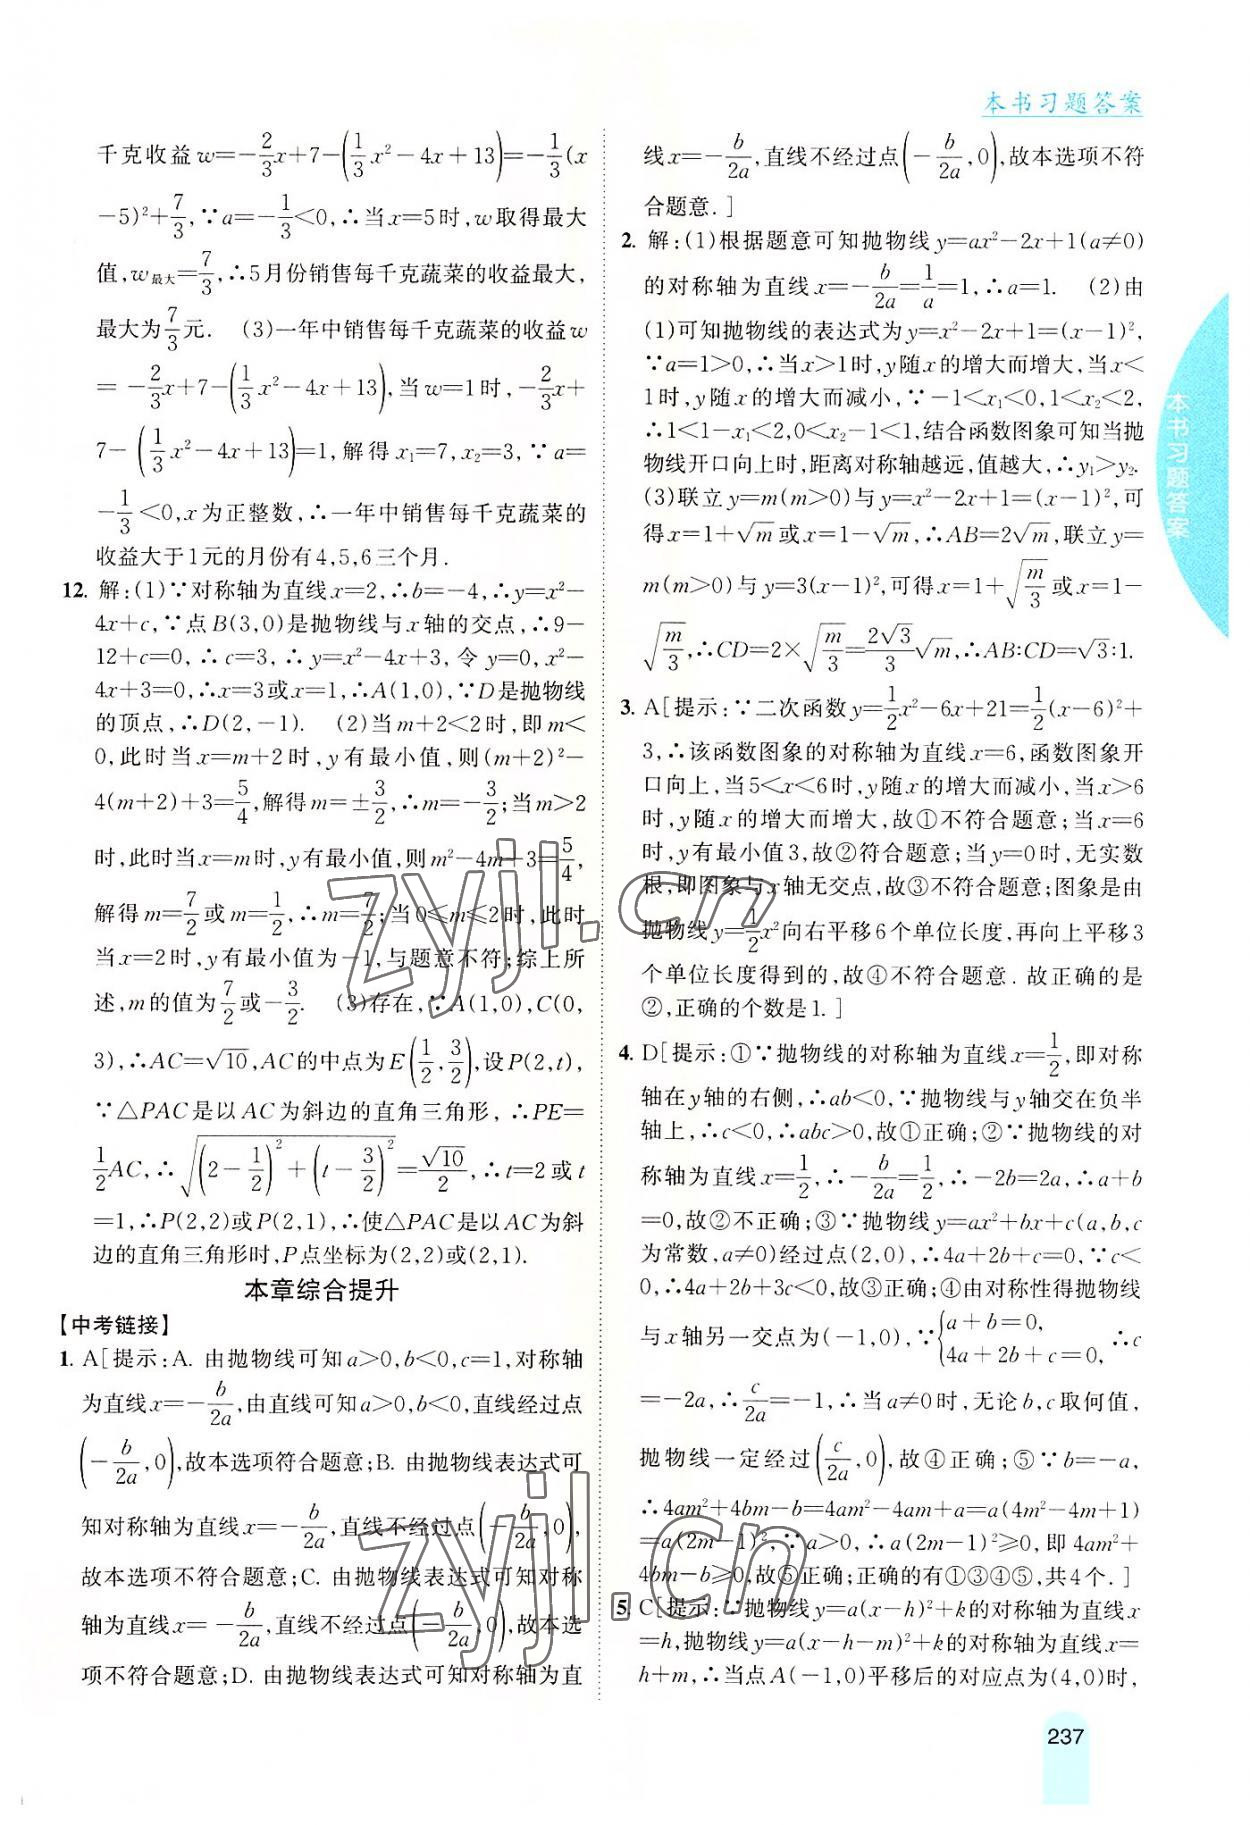 本书习题答案
千克收益w=-2/3x+7-(1/3x²-4x+13)=-1/3(x
-5)²+7/3,∵a=-1/3<0,∴当x=5时,w取得最大
值,w最大=7/3,∴5月份销售每千克蔬菜的收益最大,
最大为7/3元. (3)一年中销售每千克蔬菜的收益w
=-2/3x+7-(1/3x²-4x+13),当w=1时,-2/3x+
7-(1/3x²-4x+13)=1,解得x₁=7,x₂=3,∵a=
-1/3<0,x为正整数,∴一年中销售每千克蔬菜的
收益大于1元的月份有4,5,6三个月.
12. 解:(1)∵对称轴为直线x=2,∴b=-4,∴y=x²-
4x+c,∵点B(3,0)是抛物线与x轴的交点,∴9-
12+c=0,∴c=3,∴y=x²-4x+3,令y=0,x²-
4x+3=0,∴x=3或x=1,∴A(1,0),∵D是抛物线
的顶点,∴D(2,-1). (2)当m+2<2时,即m<
0,此时当x=m+2时,y有最小值,则(m+2)²-
4(m+2)+3=5/4,解得m=±3/2,∴m=-3/2;当m>2
时,此时当x=m时,y有最小值,则m²-4m+3=5/4,
解得m=7/2或m=1/2,∴m=7/2;当0≤m≤2时,此时
当x=2时,y有最小值为-1,与题意不符;综上所
述,m的值为7/2或-3/2. (3)存在,∵A(1,0),C(0,
3),∴AC=√10,AC的中点为E(1/2,3/2),设P(2,t),
∵△PAC是以AC为斜边的直角三角形,∴PE=
1/2AC,∴√((2-1/2)²+(t-3/2)²)=√10/2,∴t=2或t
=1,∴P(2,2)或P(2,1),∴使△PAC是以AC为斜
边的直角三角形时,P点坐标为(2,2)或(2,1).
本章综合提升
【中考链接】
1. A[提示:A. 由抛物线可知a>0,b<0,c=1,对称轴
为直线x=-b/2a,由直线可知a>0,b<0,直线经过点
(-b/2a,0),故本选项符合题意;B. 由抛物线表达式可
知对称轴为直线x=-b/2a,直线不经过点(-b/2a,0),
故本选项不符合题意;C. 由抛物线表达式可知对称
轴为直线x=-b/2a,直线不经过点(-b/2a,0),故本选
项不符合题意;D. 由抛物线表达式可知对称轴为直
线x=-b/2a,直线不经过点(-b/2a,0),故本选项不符
合题意.]
2. 解:(1)根据题意可知抛物线y=ax²-2x+1(a≠0)
的对称轴为直线x=-b/2a=1/a=1,∴a=1. (2)由
(1)可知抛物线的表达式为y=x²-2x+1=(x-1)²,
∵a=1>0,∴当x>1时,y随x的增大而增大,当x<
1时,y随x的增大而减小,∵-1<x₁<0,1<x₂<2,
∴1<1-x₁<2,0<x₂-1<1,结合函数图象可知当抛
物线开口向上时,距离对称轴越远,值越大,∴y₁>y₂.
(3)联立y=m(m>0)与y=x²-2x+1=(x-1)²,可
得x=1+√m或x=1-√m,∴AB=2√m,联立y=
m(m>0)与y=3(x-1)²,可得x=1+√(m/3)或x=1-
√(m/3),∴CD=2×√(m/3)=2√3/3√m,∴AB∶CD=√3∶1.
3. A[提示:∵二次函数y=1/2x²-6x+21=1/2(x-6)²+
3,∴该函数图象的对称轴为直线x=6,函数图象开
口向上,当5<x<6时,y随x的增大而减小,当x>6
时,y随x的增大而增大,故①不符合题意;当x=6
时,y有最小值3,故②符合题意;当y=0时,无实数
根,即图象与x轴无交点,故③不符合题意;图象是由
抛物线y=1/2x²向右平移6个单位长度,再向上平移3
个单位长度得到的,故④不符合题意. 故正确的是
②,正确的个数是1.]
4. D[提示:①∵抛物线的对称轴为直线x=1/2,即对称
轴在y轴的右侧,∴ab<0,∵抛物线与y轴交在负半
轴上,∴c<0,∴abc>0,故①正确;②∵抛物线的对
称轴为直线x=1/2,∴-b/2a=1/2,∴-2b=2a,∴a+b
=0,故②不正确;③∵抛物线y=ax²+bx+c(a,b,c
为常数,a≠0)经过点(2,0),∴4a+2b+c=0,∵c<
0,∴4a+2b+3c<0,故③正确;④由对称性得抛物线
与x轴另一交点为(-1,0),∵{a+b=0, 4a+2b+c=0,∴c
=-2a,∴c/2a=-1,∴当a≠0时,无论b,c取何值,
抛物线一定经过(c/2a,0),故④正确;⑤∵b=-a,
∴4am²+4bm-b=4am²-4am+a=a(4m²-4m+1)
=a(2m-1)²,∵a>0,∴a(2m-1)²≥0,即4am²+
4bm-b≥0,故⑤正确;正确的有①③④⑤,共4个.]
5. C[提示:∵抛物线y=a(x-h)²+k的对称轴为直线x
=h,抛物线y=a(x-h-m)²+k的对称轴为直线x=
h+m,∴当点A(-1,0)平移后的对应点为(4,0)时,
本书习题答案
237
zyjl.cn
zyjl.cn